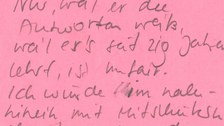 Nur, weil er die
Antworten weiß,
weil er's seit 20 Jahren
lehrt, ist unfair.
Ich würde im nach-
hinein mit Mitschülern